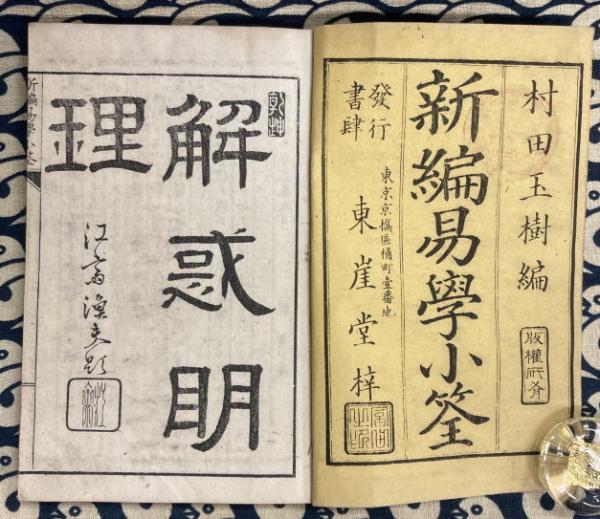 村田玉樹編
版權所有
新編易學小筌
發行
書肆
東京京橋區桶町壹番地
東崖堂梓
乾坤
解惑明
理
江齋漁夫題
新編易學小筌